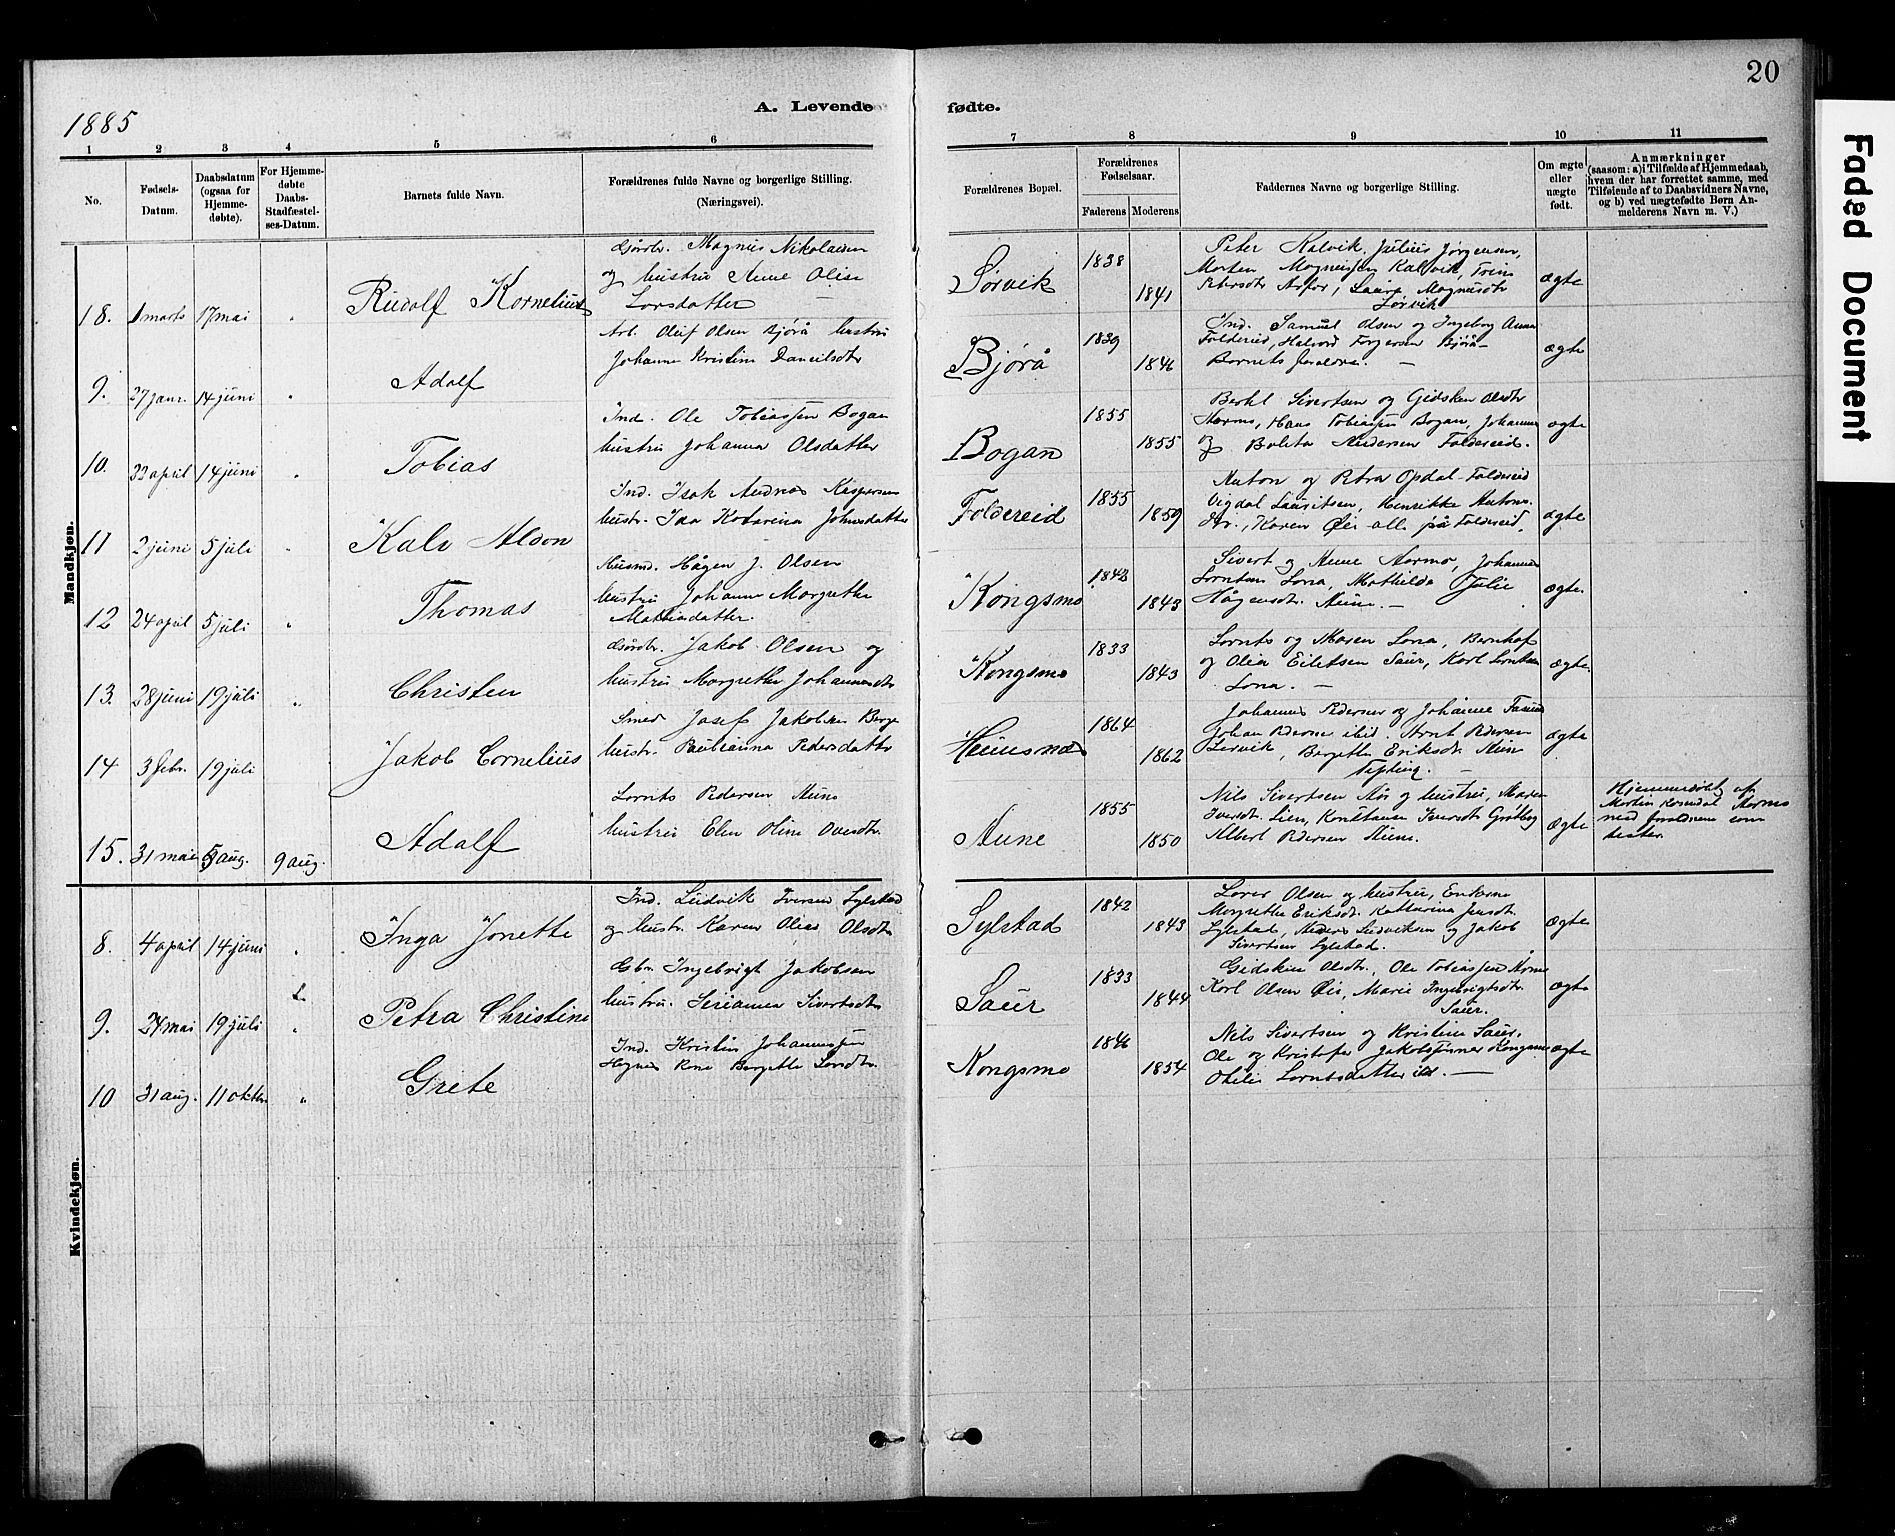 20
1885
A. Levende fødte.
1 2 3 4 5 6 7 8 9 10 11
No.
Fødsels-Datum.
Daabsdatum (ogsaa for Hjemme-døbte).
For Hjemme-døbte Daabs-Stadfæstel-ses-Datum.
Barnets fulde Navn.
Forældrenes fulde Navne og borgerlige Stilling. (Næringsvei).
Forældrenes Bopæl.
Forældrenes Fødselsaar.
Faderens Moderens
Faddernes Navne og borgerlige Stilling.
Om ægte eller uægte født.
Anmærkninger (saasom: a) i Tilfælde af Hjemmedaab, hvem der har forrettet samme, med Tilføiende af to Daabsvidners Navne, og b) ved uægtefødte Børn An-melderens Navn m. V.)
Mandkjøn.
18. 1 marts 17 mai " Rudolf Kornelius
Gjørdbr. Magnus Nikolaisen
og hustru Anne Olise
Larsdatter
Sørvik 1838 1841
Peter Kalvik, Julius Jørgensen,
Morten Magnussen Kalvik, Trine
Petersdtr Arfor, Laura Magnusdtr
Sørvik
ægte
9. 27 janr. 14 juni " Adolf
Arb. Oluf Olsen Bjørå hustru
Johanna Kristine Danielsdtr
Bjørå 1839 1846
Ind. Samuel Olsen og Ingeborg Anna
Foldereid, Halvord Torgersen Bjørå
Barnets forældre. —
ægte
10. 22 april 14 juni " Tobias
Ind. Ole Tobiassen Bogan
hustru Johanna Olsdatter
Bogan 1855 1855
Bertel Sivertsen og Gidsken Olsdtr
Harmo, Hans Tobiassen Bogan, Johanna
og Boleta Andersen Foldereid.
ægte
11 2 juni 5 juli " Kale Aldon
Ind. Isak Andreas Kaspersen
hustr. Ida Katarina Johnsdatter
Foldereid 1855 1859
Anton og Petra Opdal Foldereid
Vigdal Lauritsen, Henrikke Antons-
dtr., Karen Øie alle på Foldereid.
ægte
12 24 april 5 juli " Thomas
Husmd. Hågen J. Olsen
hustru Johanna Margrethe
Mathiasdatter.
Kongsmo 1842 1843
Sivert og Anne Harmo, Johannes
Lorntsen Lona, Mathilde Julie
Hågensdtr. Aune. —
ægte.
13. 28 juni 19 juli " Christen
Gjørdbr. Jakob Olsen og
hustru Margrethe Johannesdtr
Kongsmo 1833 1843
Lornts og Maren Lona, Bernhof
og Olea Eiletsen Saur, Karl Lorntsen
Lona. —
ægte
14 3 febr. 19 juli Jakob Cornelius
Smed Josef Jakobsen Berge
hustr. Paulianna Pedersdatter
1864 1862
Johannes Pedersen og Johanna
Johan Pedersen ibid. Arnt Pedersen
Lervik, Bergette Eriksdtr. Aune
ægte
15. 31 mai 5 aug. 9 aug. Adolf
Lornts Pedersen Aune
hustru Elen Oline Ovesdtr.
Aune 1855 1850
Nils Sivertsen Aas og hustru, Maren
Iversdtr. Lien, Konstance Iversdtr Grøtbog
Albert Pedersen Aune.
ægte
Hjemmedøbt af
Martin Rosendal Harmo
med forældrene som
tester.
Kvindekjøn.
8. 4 april 14 juni " Inga Jonette
Ind. Ludvik Iversen Sylstad
og hustr. Karen Olea Olsdtr.
Sylstad 1842 1843
Lorer Olsen og hustru,
Margrethe Eriksdtr. Katharina Jensdtr.
Sylstad, Anders Ludviksen og Jakob
Sivertsen Sylstad.
ægte
9. 24 mai 19 juli " Petra Christine
Gbr. Ingebrigt Jakobsen
hustru. Serianna Sivertsdtr
Saur 1833 1844
Gidsken Olsdtr., Ole Tobiassen Harmo
Karl Olsen Øie, Marie Ingebrigtsdtr.
Saur.
ægte
10 31 aug. 11 oktbr " Grete
Ind. Kristen Johannessen
Kongsmo 1846 1854
Nils Sivertsen og Kristine Saur.
Ole og Kristofer Jakobssønner Kongsmo
Otelie Lorntsdatter ibd. —
ægte
Faded Document